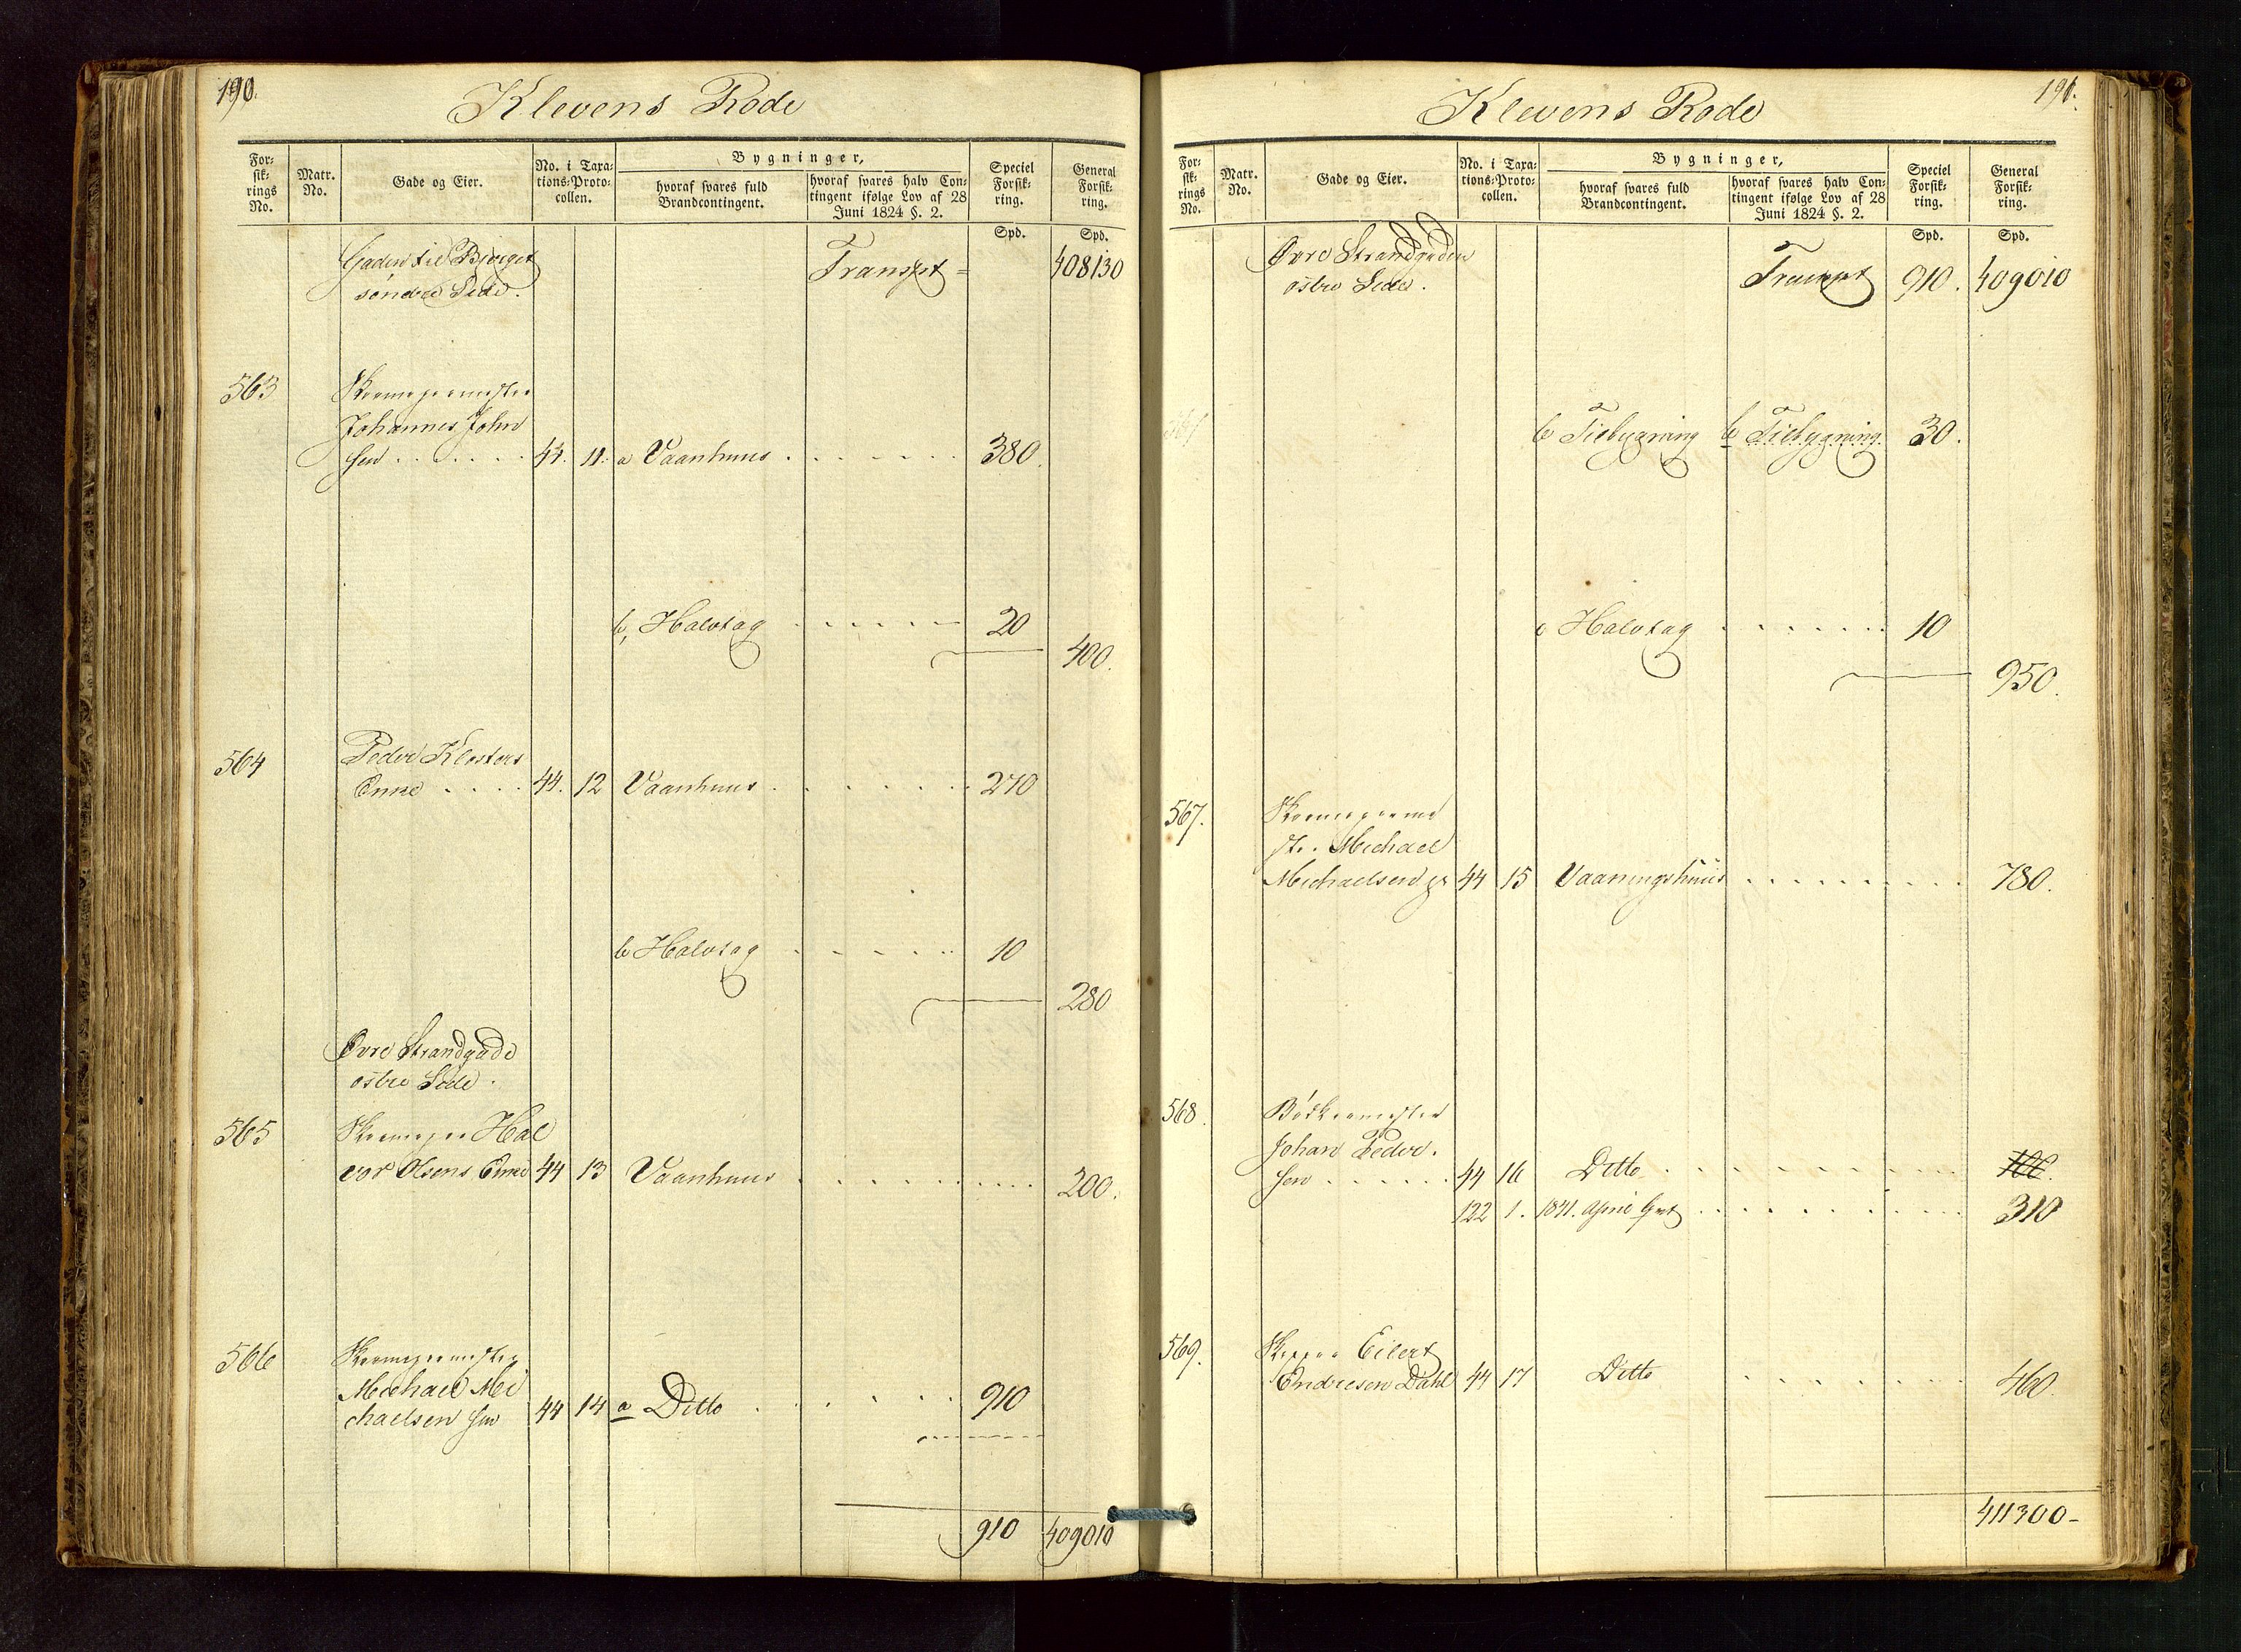 190.
Klevens Rode
For=
sik=
rings
No.
Matr.
No.
Gade og Eier.
No. i Taxa=
tions=Proto=
collen.
Bygninger,
hvoraf svares fuld
Brandcontingent.
hvoraf svares halv Con=
tingent ifølge Lov af 28
Juni 1824 §. 2.
Speciel
Forsik=
ring.
General
Forsik=
ring.
Spd. Spd.
Gaden til Bjerget Transpt = 408130
søndre Side.
563 Skomagermester
Johannes John
sen . . . . . . 43. 11. a Vaanhuus . . . . . . 380.
b, Halvtag . . . . . . 20
400.
564 Peder Klosters
Enke . . . . 44. 12 Vaanhuus . . . . . . 270
b Halvtag . . . . . . 10
280
Øvre Strandgade
østre Side.
565 Skomager Hal
vor Olsens Enke 44 13 Vaanhuus . . . . . . 200.
566 Skomagermester
Michael Mi
chaelsen sen 44 14 a Ditto . . . . . 910
910 409010
191.
Klevens Rode
For=
sik=
rings
No.
Matr.
No.
Gade og Eier.
No. i Taxa=
tions=Proto=
collen.
Bygninger,
hvoraf svares fuld
Brandcontingent.
hvoraf svares halv Con=
tingent ifølge Lov af 28
Juni 1824 §. 2.
Speciel
Forsik=
ring.
General
Forsik=
ring.
Spd. Spd.
Øvre Strandgaden Transpt 910. 409010
østre Side.
b Tilbygning b Tilbygning. 30.
c Halvtag . . . . . . 10
950.
567. Skomagerme
ster Michael
Michaelsen jr 44 15 Vaaningshuus . . . . . . 780.
568. Bødkermester
Johan Peder
sen . . . . . . 44 16 Ditto . . . . . . 100.
122 1. 1841. April . . . . . . 310
569. Skipper Eilert
Endresen Dahl 44 17 Ditto . . . . . . 460.
411300-